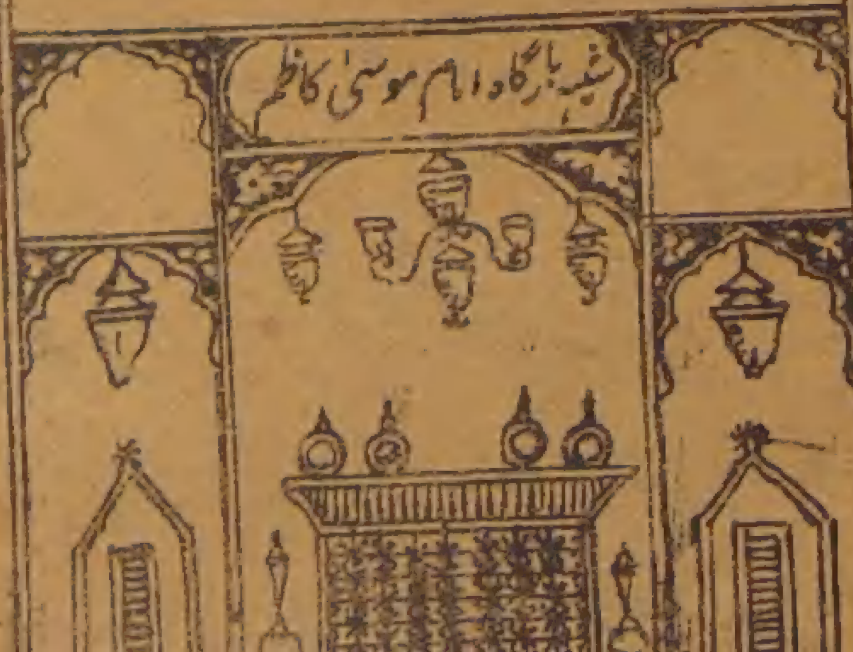 شبیہ بارگاہ امام موسیٰ کاظم